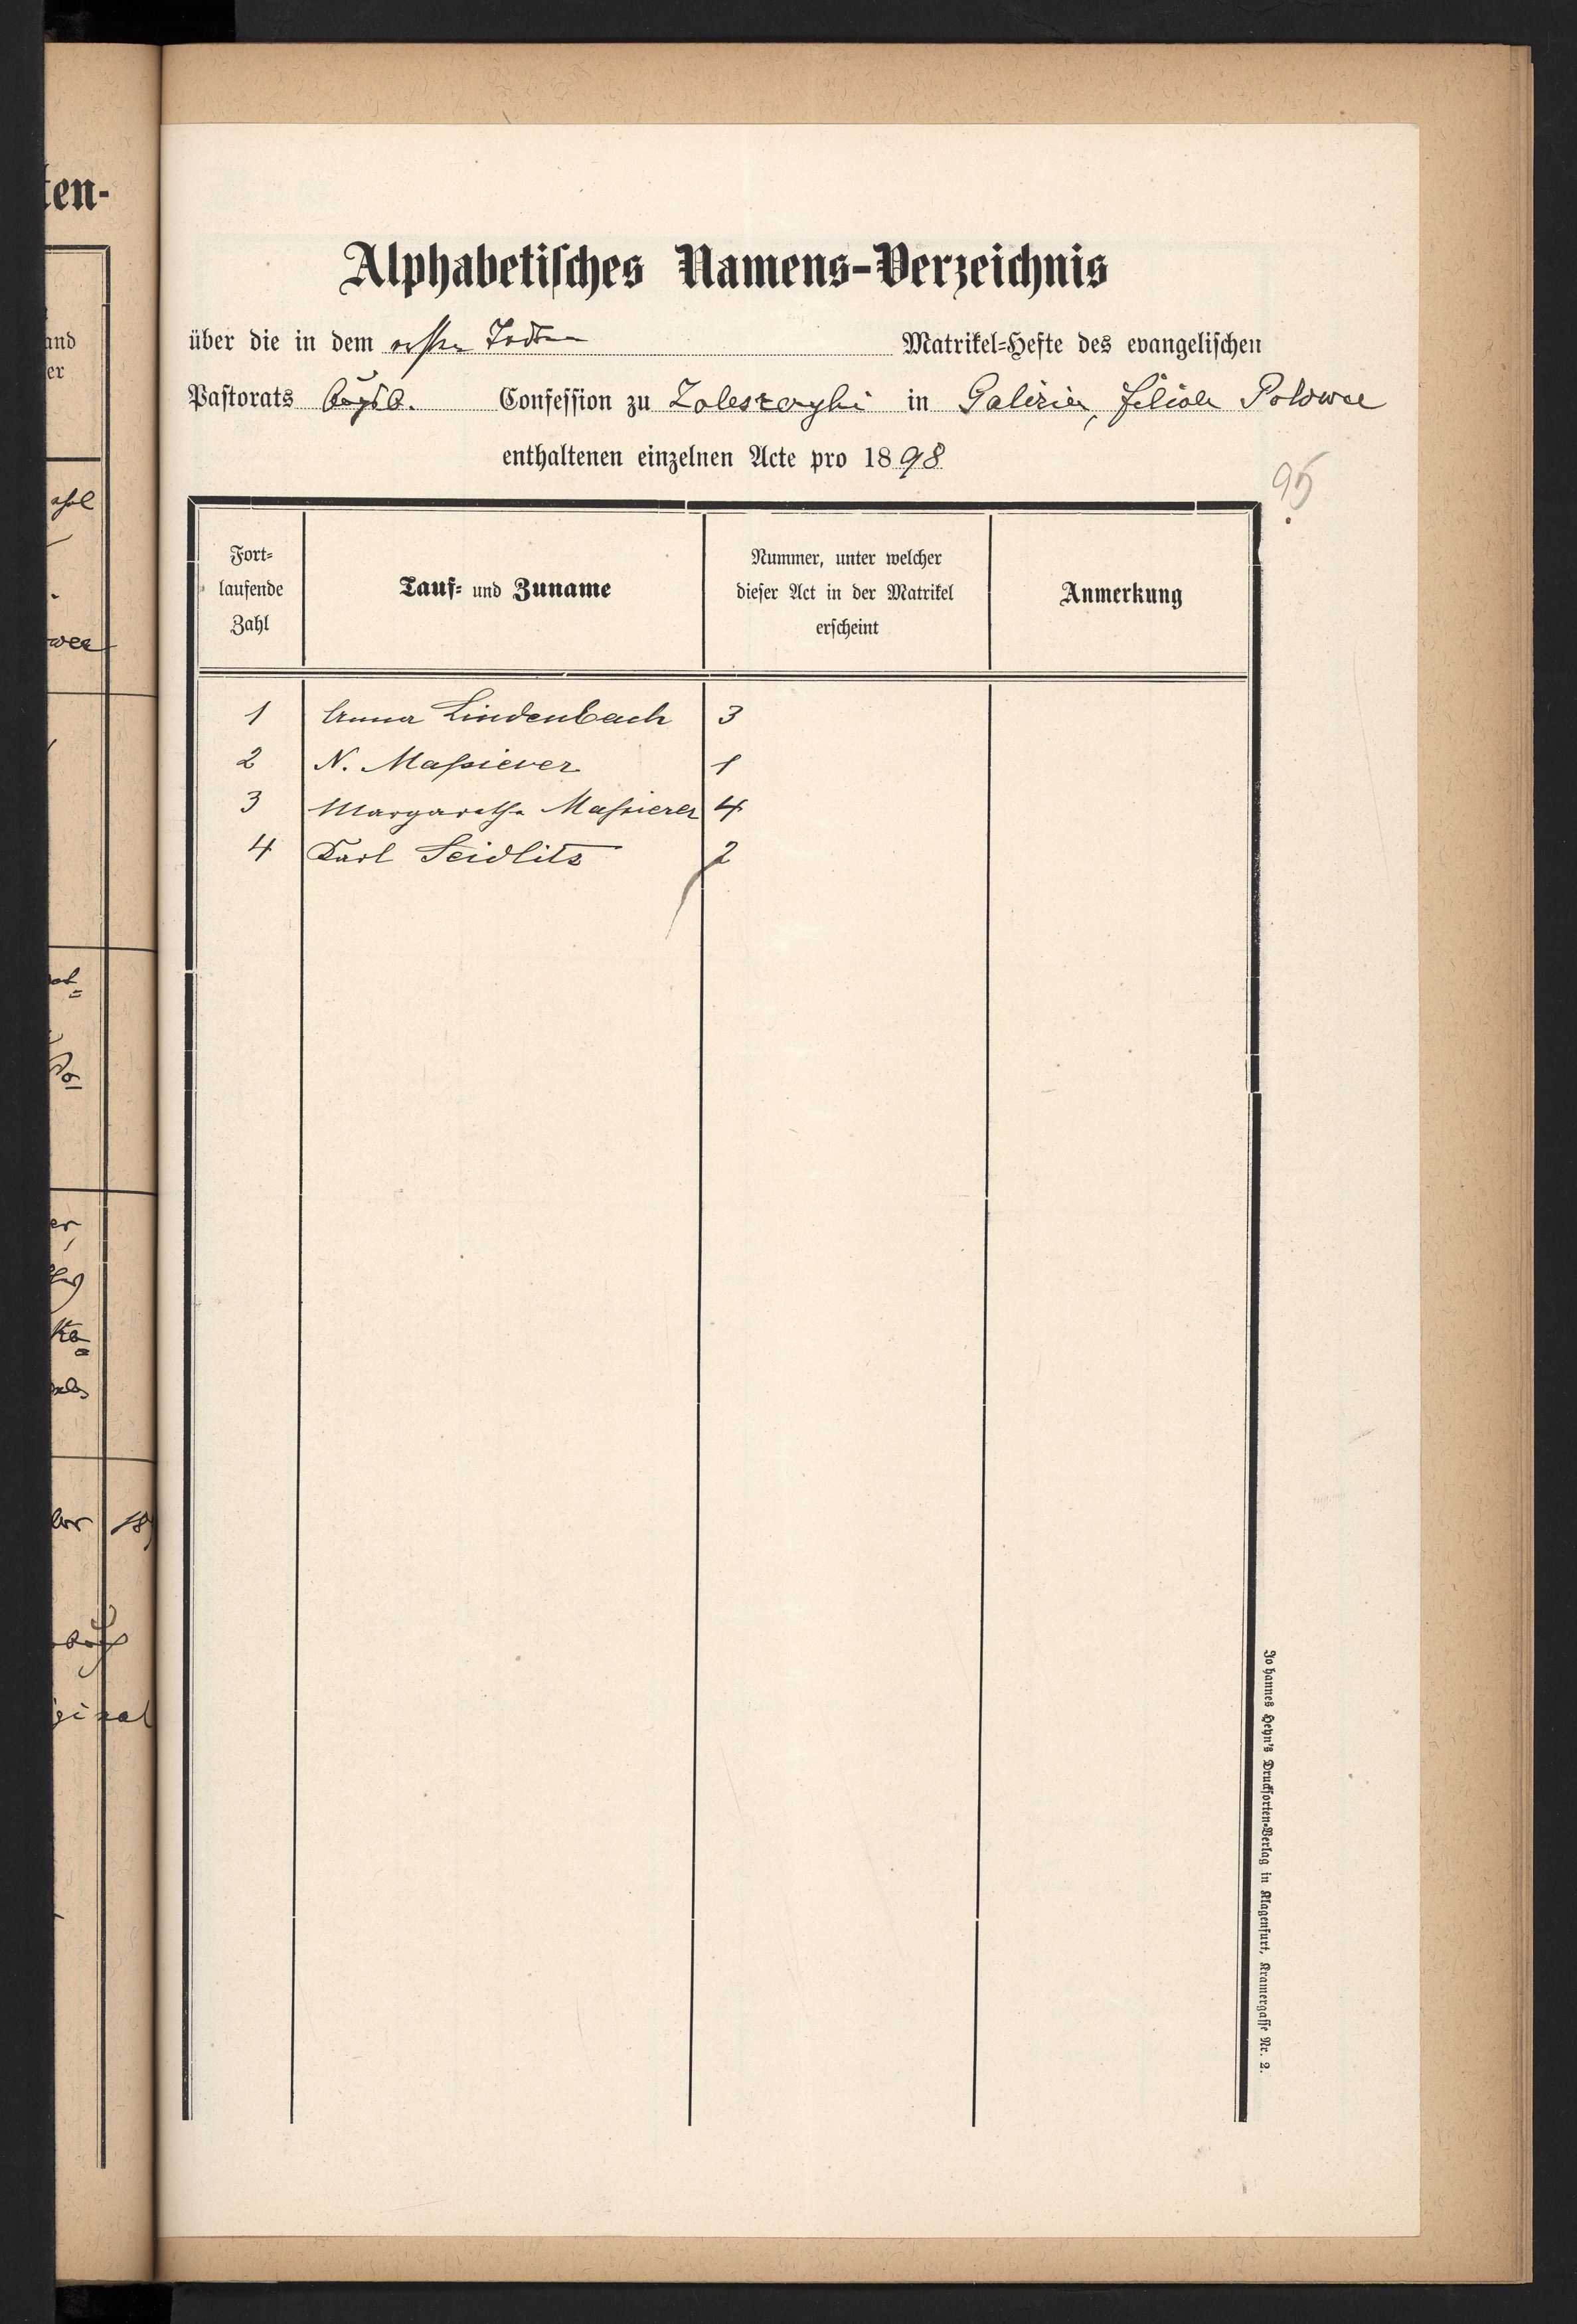 ten-
Alphabetisches Namens-Verzeichnis
über die in dem ersten Todten Matrikel-Hefte des evangelischen
Pastorats Augsb. Confession zu Zaleszczyki in Galizien, Filiale Polowce
enthaltenen einzelnen Acte pro 1898
95
Fort-
laufende
Zahl
Tauf- und Zuname
Nummer, unter welcher
dieser Act in der Matrikel
erscheint
Anmerkung
1 Anna Lindenbach 3
2 N. Massierer 1
3 Margaretha Massierer 4
4 Karl Seidlitz 2
Johannes Heyn's Drucksorten-Verlag in Klagenfurt, Kramergasse Nr. 2.